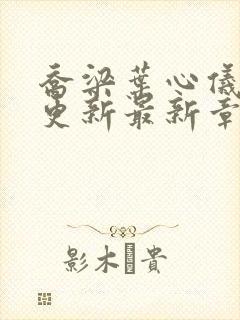 喬梁葉心儀
更新最新章
影木 貴